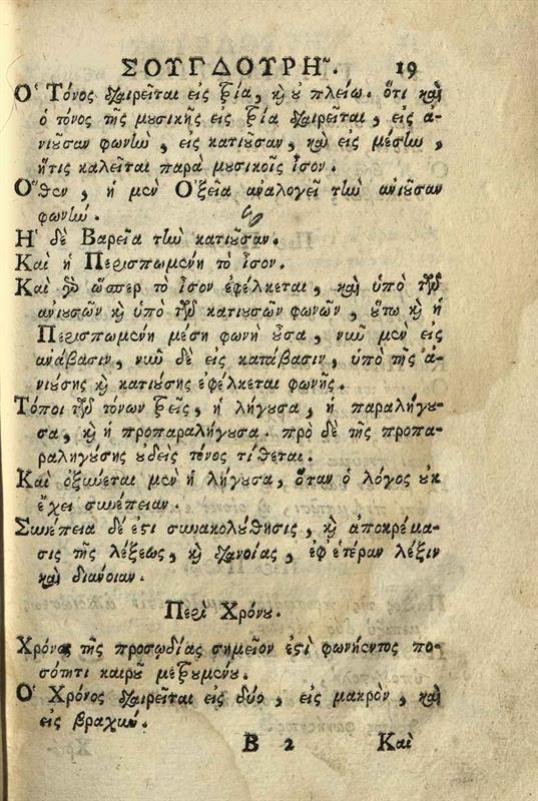 ΣΟΥΓΔΟΥΡΗ͂. 19
Ὁ Τόνος διαιρεῖται εἰς τρία, καὶ οὐ πλείω. ὅτι καὶ
ὁ τόνος τῆς μουσικῆς εἰς τρία διαιρεῖται, εἰς ἀ-
νιοῦσαν φωνὴν, εἰς κατιοῦσαν, καὶ εἰς μέσην,
ἥτις καλεῖται παρὰ μουσικοῖς ἴσον.
Ὅθεν, ἡ μὲν Ὀξεῖα ἀναλογεῖ τὴν ἀνιοῦσαν
φωνήν.
Ἡ δὲ Βαρεῖα τὴν κατιοῦσαν.
Καὶ ἡ Περισπωμένη τὸ ἴσον.
Καὶ γὰρ ὥσπερ τὸ ἴσον ἐφέλκεται, καὶ ὑπὸ τῶν
ἀνιουσῶν καὶ ὑπὸ τῶν κατιουσῶν φωνῶν, οὕτω καὶ ἡ
Περισπωμένη μέση φωνὴ οὖσα, νῦν μὲν εἰς
ἀνάβασιν, νῦν δὲ εἰς κατάβασιν, ὑπὸ τῆς ἀ-
νιούσης καὶ κατιούσης ἐφέλκεται φωνῆς.
Τόποι τῶν τόνων τρεῖς, ἡ λήγουσα, ἡ παραλήγου-
σα, καὶ ἡ προπαραλήγουσα. πρὸ δὲ τῆς προπα-
ραληγούσης οὐδεὶς τόνος τίθεται.
Καὶ ὀξύνεται μὲν ἡ λήγουσα, ὅταν ὁ λόγος οὐκ
ἔχει συνέπειαν.
Συνέπεια δέ ἐστι συνακολούθησις, καὶ ἀποκρέμα-
σις τῆς λέξεως, καὶ διανοίας, ἐφ' ἑτέραν λέξιν
καὶ διάνοιαν.
Περὶ Χρόνου.
Χρόνος τῆς προσῳδίας σημεῖον ἐστὶ φωνήεντος πο-
σότητι καιροῦ μετρουμένου.
Ὁ Χρόνος διαιρεῖται εἰς δύο, εἰς μακρὸν, καὶ
εἰς βραχύν.
B 2 Καὶ